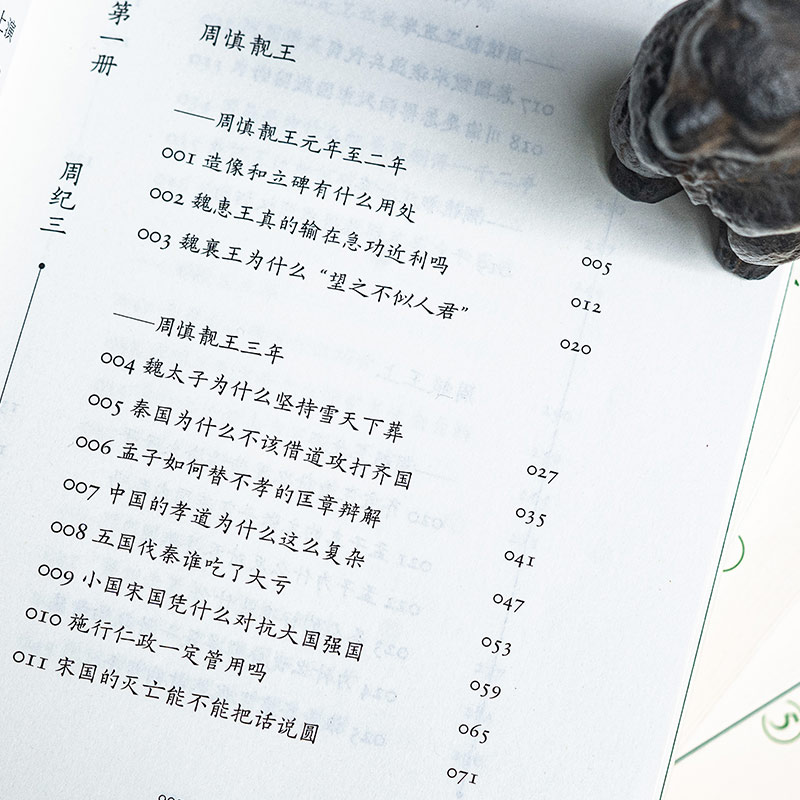 第一册
周纪三
周慎靓王
——周慎靓王元年至二年
001 造像和立碑有什么用处 005
002 魏惠王真的输在急功近利吗 012
003 魏襄王为什么“望之不似人君” 020
——周慎靓王三年
004 魏太子为什么坚持雪天下葬 027
005 秦国为什么不该借道攻打齐国 035
006 孟子如何替不孝的匡章辩解 041
007 中国的孝道为什么这么复杂 047
008 五国伐秦谁吃了大亏 053
009 小国宋国凭什么对抗大国强国 059
010 施行仁政一定管用吗 065
011 宋国的灭亡能不能把话说圆 071
5